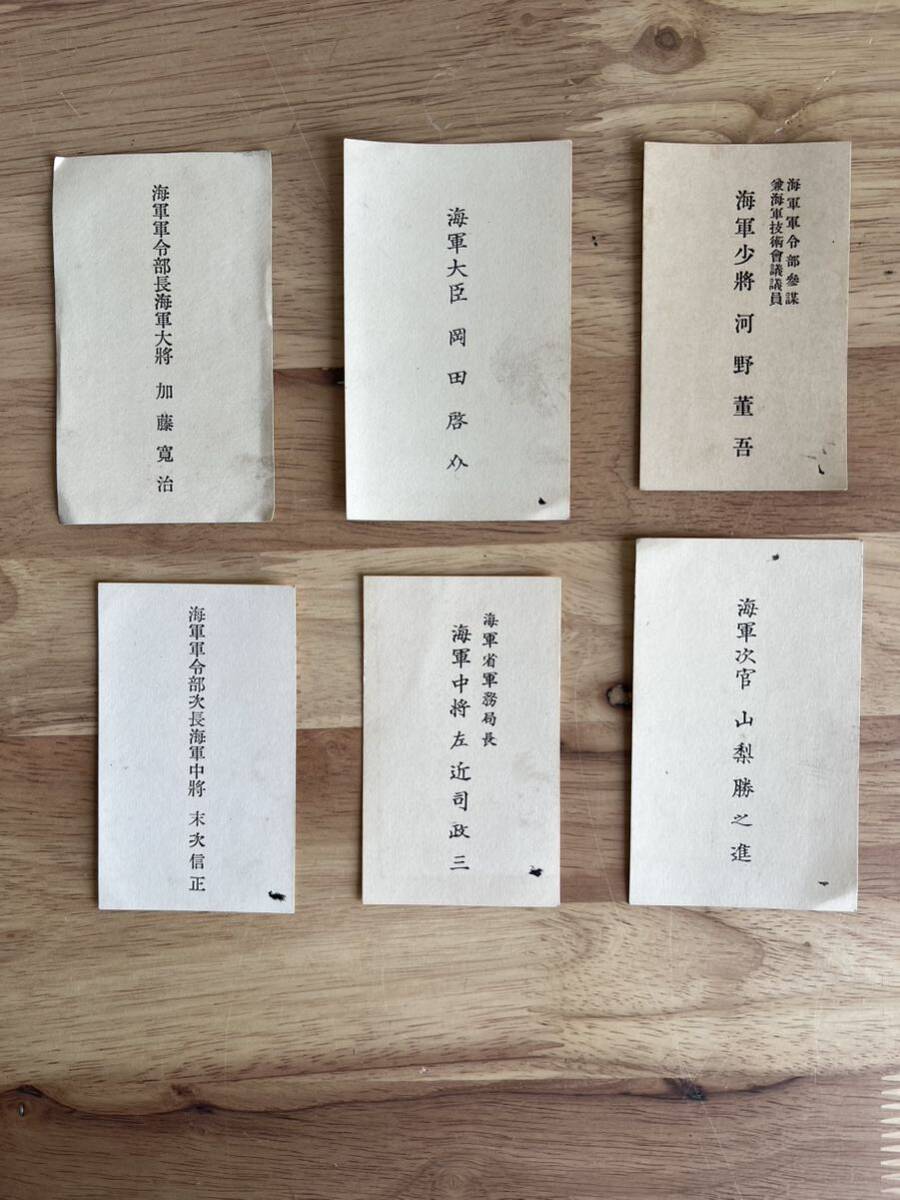 海軍軍令部長海軍大將 加藤寬治
海軍大臣 岡田啓介
海軍軍令部參謀
兼海軍技術會議議員
海軍少將 河野董吾
海軍軍令部次長海軍中將 末次信正
海軍省軍務局長
海軍中將 左近司政三
海軍次官 山梨勝之進